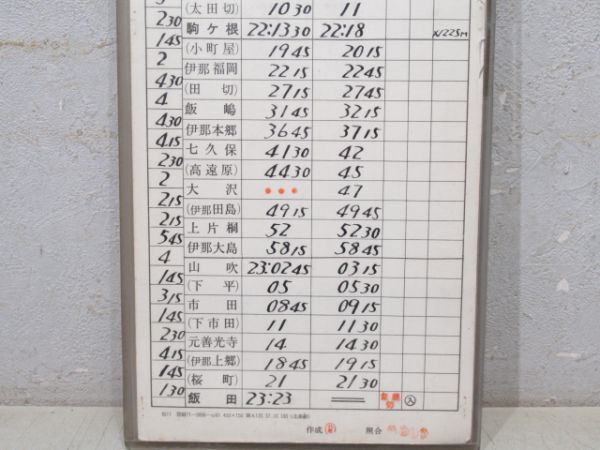 (太田切) 10 30 11
2 30
駒ケ根 22:13 30 22:18 ×/225M
1 45
(小町屋) 19 45 20 15
2
伊那福岡 22 15 22 45
4 30
(田切) 27 15 27 45
4
飯嶋 31 45 32 15
4 30
伊那本郷 36 45 37 15
4 15
七久保 41 30 42
2 30
(高遠原) 44 30 45
2
大沢 ••• 47
2 15
(伊那田島) 49 15 49 45
2 15
上片桐 52 52 30
5 45
伊那大島 58 15 58 45
4
山吹 23:02 45 03 15
1 45
(下平) 05 05 30
3 15
市田 08 45 09 15
1 45
(下市田) 11 11 30
2 30
元善光寺 14 14 30
4 15
(伊那上郷) 18 45 19 15
1 45
(桜町) 21 21 30
1 30
飯田 23:23 入
作成 照合